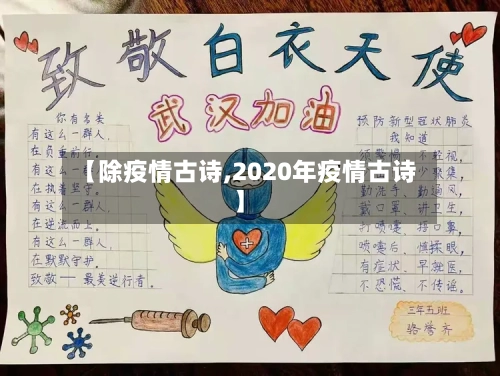 致敬白衣天使
武汉加油
【除疫情古诗,2020年疫情古诗
】
你有名矣
有这么一群人,
在负重前行.
有这么一群人
在执着坚守.
有这么一群人
在逆流而上.
有这么一群人,
在默默守护.
致敬——最美逆行者。
预防新型冠状肺炎
我知道
须警惕、不轻视,
少聚集,
勤洗手、勤通风,
戴口罩、讲卫生,
打喷嚏、捂口鼻,
喷嚏后、慎揉眼,
有症状、早就医,
不恐慌、不传谣。
三年五班
骆誉齐